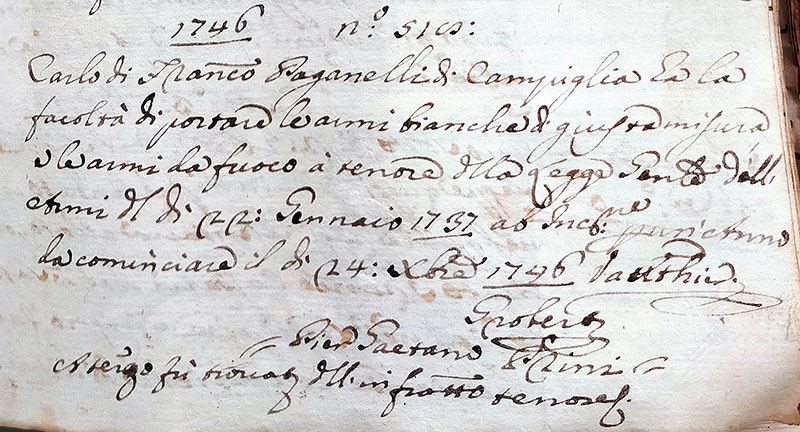 1746 n.º 5105:
Carlo di Franco Paganelli di Campiglia ha la
facoltà di portare le armi bianche di giusta misura
e le armi da fuoco à tenore della Legge Genle dell'
Armi del dì 22: Gennaio 1737 ab Inc:ne per
da cominciare il dì 24: Xbre 1746
Pier Gaetano
A tergo fù trovato dell' infratto tenore